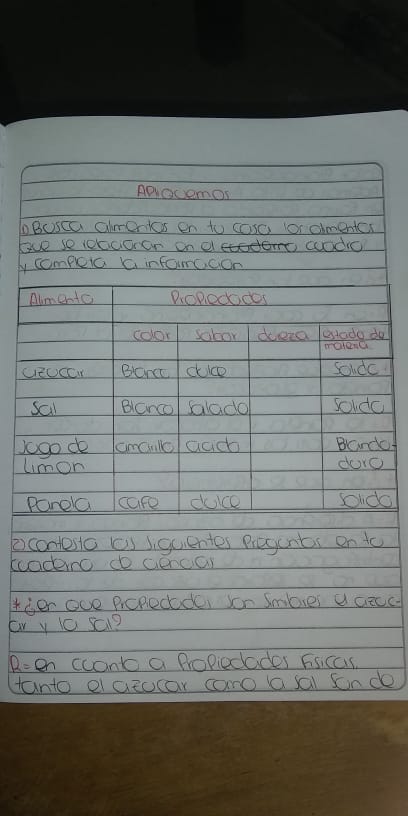 Apliquemos
1) Busca alimentos en tu casa los alimentos
que se relacionan en el cuadro
y completa la informacion
Alimento Propiedades
color sabor dureza estado de
materia
azucar Blanco dulce Solido
Sal Blanco salado Solido
Jogo de amarillo acido Blando-
Limon duro
Panela cafe dulce Solido
2) contesta las siguientes preguntas en tu
cuaderno de ciencias
* ¿en que propiedades son similares el azuc-
ar y la sal?
R= en cuanto a Propiedades Fisicas,
tanto el azucar como la sal son de